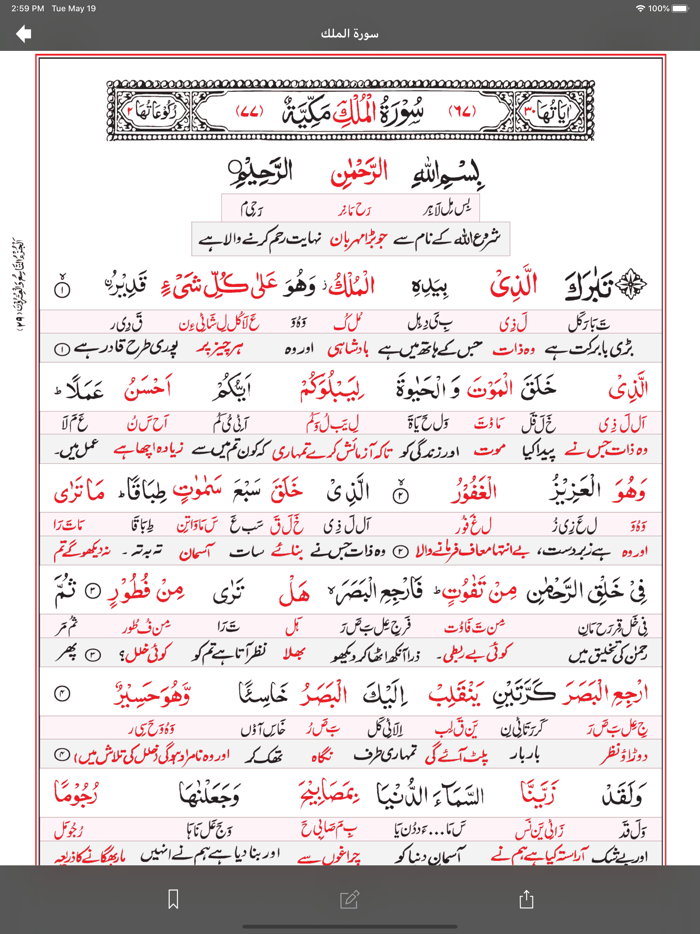 2:59 PM Tue May 19 100%
سورة الملك
اٰیَاتُهَا ٣٠ (٦٧) سُوْرَةُ الْمُلْكِ مَكِّيَّةٌ (٧٧) رُكُوْعَاتُهَا ٢
بِسْمِ اللهِ الرَّحْمٰنِ الرَّحِيْمِ
بِس مِل لَا ہِر رَح مَا نِر رَ حِی م
شروع اللہ کے نام سے جو بڑا مہربان نہایت رحم کرنے والا ہے
تَبٰرَكَ الَّذِىْ بِيَدِهِ الْمُلْكُ وَهُوَ عَلٰى كُلِّ شَىْءٍ قَدِيْرُ ۙ ١
تَ بَا رَ كَل لَ ذِی بِ یَ دِ ہِل مُل كُ وَ ہُ وَ عَ لَا كُل لِ شَا ئِ ءِن قَ دِی ر
بڑی بابرکت ہے وہ ذات جس کے ہاتھ میں ہے بادشاہی اور وہ ہر چیز پر پوری طرح قادر ہے ١
الَّذِىْ خَلَقَ الْمَوْتَ وَ الْحَيٰوةَ لِيَبْلُوَكُمْ اَيُّكُمْ اَحْسَنُ عَمَلًا ؕ
اَل لَ ذِی خَ لَ قَل مَا وْ تَ وَل حَ یَا ةَ لِ یَب لُ وَ كُم اَ ئی یُ كُم اَح سَ نُ عَ مَ لَا
وہ ذات جس نے پیدا کیا موت اور زندگی کو تاکہ آزمائش کرے تمہاری کہ کون تم میں سے زیادہ اچھا ہے عمل میں۔
وَهُوَ الْعَزِيْزُ الْغَفُوْرُ ٢ الَّذِىْ خَلَقَ سَبْعَ سَمٰوٰتٍ طِبَاقًا ؕ مَا تَرٰى
وَ ہُ وَ ل عَ زِی زُ ل غَ فُو ر اَل لَ ذِی خَ لَ قَ سَب عَ سَ مَا وَا تِن طِ بَا قَا مَا تَ رَا
اور وہ ہے زبردست، بے انتہا معاف فرمانے والا ٢ وہ ذات جس نے بنائے سات آسمان تہ بہ تہ۔ نہ دیکھو گے تم
فِىْ خَلْقِ الرَّحْمٰنِ مِنْ تَفٰوُتٍ ؕ فَارْجِعِ الْبَصَرَ ۙ هَلْ تَرٰى مِنْ فُطُوْرٍ ٣ ثُمَّ
فِی خَل قِر رَح مَا نِ مِن تَ فَا وُت فَر جِ عِل بَ صَ رَ ہَل تَ رَا مِن فُ طُور ثُم مَر
رحمٰن کی تخلیق میں کوئی بے ربطی۔ ذرا آنکھ اٹھا کر دیکھو بھلا نظر آتا ہے تم کو کوئی خلل؟ ٣ پھر
ارْجِعِ الْبَصَرَ كَرَّتَيْنِ يَنْقَلِبْ اِلَيْكَ الْبَصَرُ خَاسِئًا وَّهُوَ حَسِيْرٌ ٤
جِ عِل بَ صَ رَ كَر رَ تَا ئِ نِ یَن قَ لِب اِ لَا ئِ كَل بَ صَ رُ خَا سِ آوْں وَ ہُ وَ حَ سِی ر
دوڑاؤ نظر بار بار پلٹ آئے گی تمہاری طرف نگاہ تھک کر اور وہ نامراد ہوگی (خلل کی تلاش میں) ٤
وَلَقَدْ زَيَّنَّا السَّمَآءَ الدُّنْيَا بِمَصَابِيْحَ وَجَعَلْنٰهَا رُجُوْمًا
وَ ل قَد زَا ئی یَن نَس سَ مَا... ءَ دُوْن یَا بِ مَ صَا بِی حَ وَ جَ عَل نَا ہَا رُ جُو مَل
اور بے شک آراستہ کیا ہے ہم نے آسمان دنیا کو چراغوں سے اور بنا دیا ہے ہم نے انہیں مار بھگانے کا ذریعہ